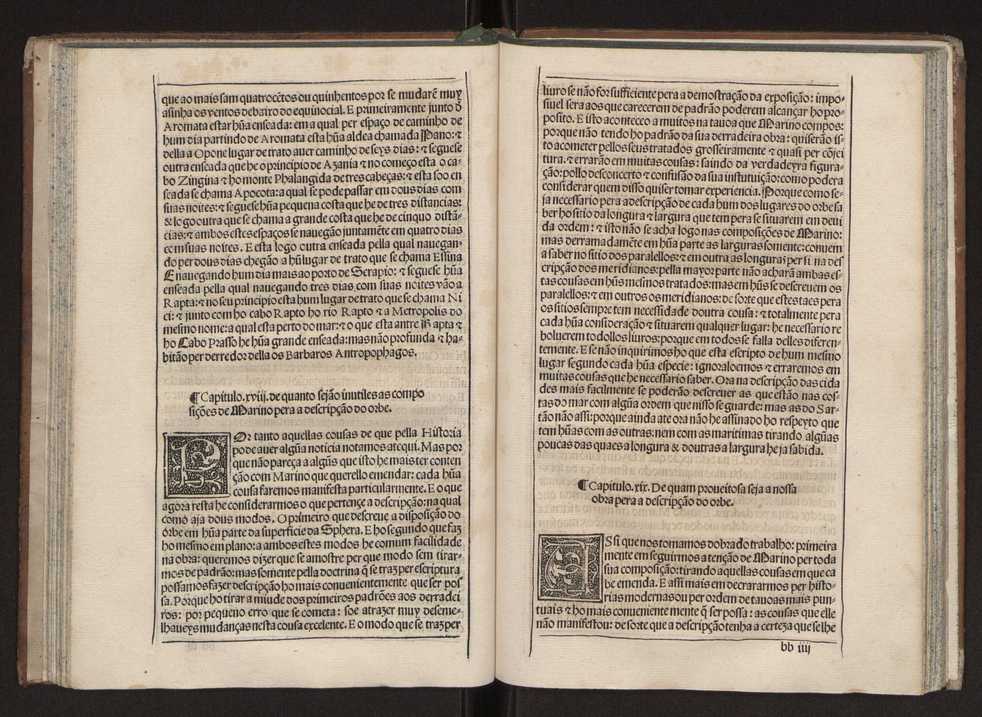 que ao mais sam quatrocẽtos ou quinhentos por se mudarẽ muy
asinha os ventos debaixo do equinocial. E primeiramente junto ð
Aromata estar hũa enseada: em a qual per espaço de caminho de
hum dia partindo de Aromata esta hũa aldea chamada Pano: ⁊
della a Opone lugar de trato auer caminho de seys dias: ⁊ seguese
outra enseada que he o principio de Azania ⁊ no começo esta o ca-
bo Zingina ⁊ ho monte Phalangida de tres cabeças: ⁊ esta soo en
seada se chama Apocota: a qual se pode passar em dous dias com
suas noites: ⁊ seguese hũa pequena costa que he de tres distancias:
⁊ logo outra que se chama a grande costa que he de cinquo distã-
cias: ⁊ ambos estes espaços se nauegão juntamẽte em quatro dias
com suas noites. E esta logo outra enseada pella qual nauegan-
do per dous dias chegão a hũ lugar de trato que se chama Essina
E nauegando hum dia mais ao porto de Serapio: ⁊ seguese hũa
enseada pella qual nauegando tres dias com suas noites vão a
Rapta: ⁊ no seu principio esta hum lugar de trato que se chama Ni
ci: ⁊ junto com ho cabo Rapto ho rio Rapto ⁊ a Metropolis do
mesmo nome: a qual esta perto do mar: ⁊ o que esta antre Rapta ⁊
ho Cabo Prasso he hũa grande enseada: mas não profunda ⁊ ha-
bitão per derredor della os Barbaros Antropophagos.
¶ Capitulo. xviij. de quanto sejão inutiles as compo
sições de Marino pera a descripção do orbe.
POr tanto aquellas cousas de que pella Historia
pode auer algũa noticia notamos ate qui. Mas por
que não pareça a algũs que isto he mais ter conten
ção com Marino que querello emendar: cada hũa
cousa faremos manifesta particularmente. E o que
agora resta he considerarmos o que pertençe a descripção: na qual
como aja dous modos. O primeiro que descreue a disposição do
orbe em hũa parte da superficie da Sphera. E ho segundo que faz
ho mesmo em plano: a ambos estes modos he comum facilidade
na obra: queremos dizer que se amostre per que modo sem tirar-
mos de padrão: mas somente pella doctrina q̃ se traz per escriptura
possamos fazer descripção ho mais conuenientemente que ser pos
sa. Porque ho tirar a miude dos primeiros padrões aos derradei
ros: por pequeno erro que se cometa: soe atrazer muy deseme-
lhaueys mudanças nesta cousa excelente. E o modo que se traz per
liuro se não for sufficiente pera a demostração da exposição: impo-
siuel sera aos que carecerem de padrão poderem alcançar ho pro-
posito. E isto aconteceo a muitos na tauoa que Marino compos:
porque não tendo ho padrão da sua derradeira obra: quiserão is-
to acometer pellos seus tratados grosseiramente ⁊ quasi per cõjei
tura. ⁊ errarão em muitas cousas: saindo da verdadeyra figura-
ção: pollo desconcerto ⁊ confusão da sua instituição: como podera
considerar quem disso quiser tomar experiencia. Porque como se-
ja necessario pera a descripção de cada hum dos lugares do orbe sa
ber ho sitio da longura ⁊ largura que tem pera se situarem em deui
da ordem: ⁊ isto não se acha logo nas composições de Marino:
mas derramadamẽte em hũa parte as larguras somente: conuem
a saber no sitio dos parallelos: ⁊ em outra as longuras per si na des
cripção dos meridianos: pella mayor parte não achará ambas es-
tas cousas em hũs mesmos tratados: mas em hũs se descreuem os
paralellos: ⁊ em outros os meridianos: de sorte que estes taes pera
os sitios sempre tem necessidade doutra cousa: ⁊ totalmente pera
cada hũa consideração ⁊ situarem qualquer lugar: he necessario re
boluerem todollos liuros: porque em todos se falla delles diferen-
temente. E se não inquirimos ho que esta escripto de hum mesmo
lugar segundo cada hũa especie: ignoraloemos ⁊ erraremos em
muitas cousas que he necessario saber. Ora na descripção das cida
des mais facilmente se poderão descreuer as que estão nas cos-
tas do mar com algũa ordem que nisso se guarde: mas as do Ser-
tão não assi: porque ainda ate ora não he assinado ho respeyto que
tem hũas com as outras: nem com as maritimas tirando algũas
poucas das quaes a longura & doutras a largura he ja sabida.
¶ Capitulo. xix. De quam proueitosa seja a nossa
obra pera a descripção do orbe.
ASsi que nos tomamos dobrado trabalho: primeira
mente em seguirmos a tenção de Marino per toda
sua composição: tirando aquellas cousas em que ca
be emenda. E assi mais em decrararmos per histo-
rias modernas ou per ordem de tauoas mais pun-
tuais ⁊ ho mais conueniente mente q̃ ser possa: as cousas que elle
não manifestou: de sorte que a descripção tenha a certeza que se lhe
bb iiij